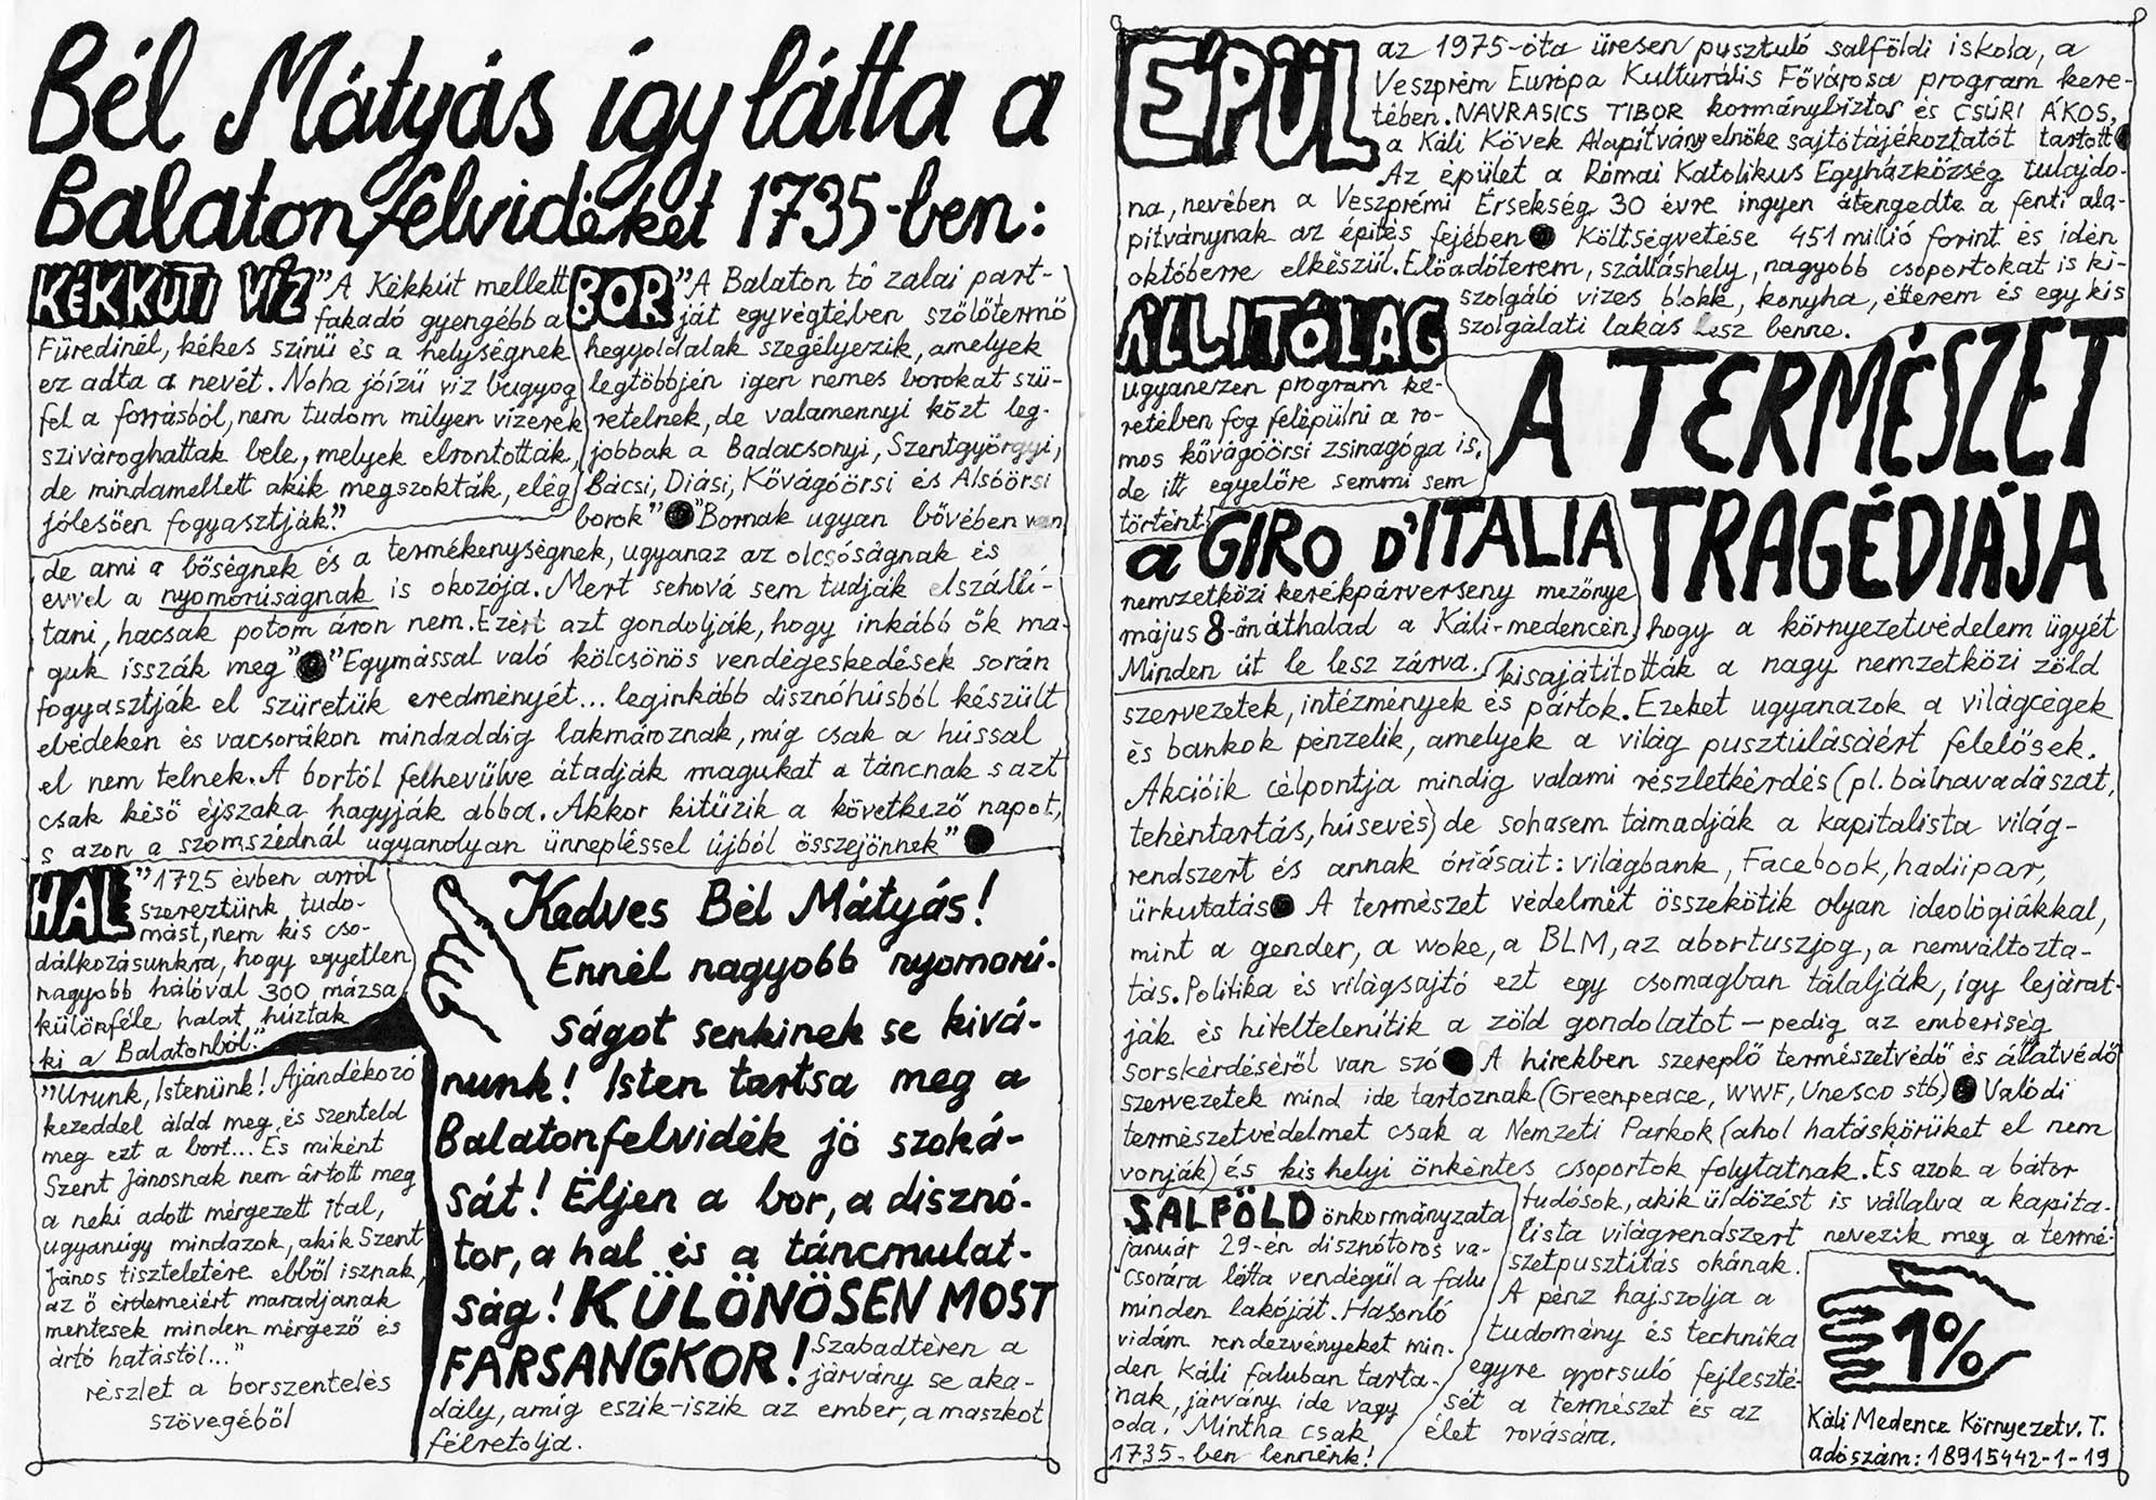 Bél Mátyás így látta a
Balatonfelvidéket 1735-ben:
KÉKKÚTI VÍZ "A Kékkút mellett
fakadó gyengébb a
Füredinél, kékes színű és a helységnek
ez adta a nevét. Noha jóízű víz bugyog
fel a forrásból, nem tudom milyen vízerek
szivároghattak bele, melyek elrontották,
de mindamellett akik megszokták, elég
jólesően fogyasztják."
BOR "A Balaton tó zalai part-
ját egyvégtében szőlőtermő
hegyoldalak szegélyezik, amelyek
legtöbbjén igen nemes borokat szü-
retelnek, de valamennyi közt leg-
jobbak a Badacsonyi, Szentgyörgyi,
Bácsi, Diási, Kővágóörsi és Alsóörsi
borok" ● "Bornak ugyan bővében van
de ami a bőségnek és a termékenységnek, ugyanaz az olcsóságnak és
evvel a nyomorúságnak is okozója. Mert sehová sem tudják elszállí-
tani, hacsak potom áron nem. Ezért azt gondolják, hogy inkább ők ma-
guk isszák meg" ● "Egymással való kölcsönös vendégeskedések során
fogyasztják el szüretük eredményét... leginkább disznóhúsból készült
ebédeken és vacsorákon mindaddig lakmároznak, míg csak a hússal
el nem telnek. A bortól felhevülve átadják magukat a táncnak s azt
csak késő éjszaka hagyják abba. Akkor kitűzik a következő napot,
s azon a szomszédnál ugyanolyan ünnepléssel újból összejönnek" ●
HAL "1725 évben arról
szereztünk tudo-
mást, nem kis cso-
dálkozásunkra, hogy egyetlen
nagyobb hálóval 300 mázsa
különféle halat húztak
ki a Balatonból."
"Urunk, Istenünk! Ajándékozó
kezeddel áldd meg és szenteld
meg ezt a bort... És miként
Szent Jánosnak nem ártott meg
a neki adott mérgezett ital,
ugyanúgy mindazok, akik Szent
János tiszteletére ebből isznak,
az ő érdemeiért maradjanak
mentesek minden mérgező és
ártó hatástól..."
részlet a borszentelés
szövegéből
Kedves Bél Mátyás!
Ennél nagyobb nyomorú-
ságot senkinek se kívá-
nunk! Isten tartsa meg a
Balatonfelvidék jó szoká-
sát! Éljen a bor, a disznó-
tor, a hal és a táncmulat-
ság! KÜLÖNÖSEN MOST
FARSANGKOR! Szabadtéren a
járvány se aka-
dály, amíg eszik-iszik az ember, a maszkot
félretolja.
ÉPÜL az 1975-óta üresen pusztuló salföldi iskola, a
Veszprém Európa Kulturális Fővárosa program kere-
tében. NAVRASICS TIBOR kormánybiztos és CSŰRI ÁKOS,
a Káli Kövek Alapítvány elnöke sajtótájékoztatót tartott ●
Az épület a Római Katolikus Egyházközség tulajdo-
na, nevében a Veszprémi Érsekség 30 évre ingyen átengedte a fenti ala-
pítványnak az építés fejében ● Költségvetése 451 millió forint és idén
októberre elkészül. Előadóterem, szálláshely, nagyobb csoportokat is ki-
szolgáló vizes blokk, konyha, étterem és egy kis
szolgálati lakás lesz benne.
ÁLLÍTÓLAG
ugyanezen program ke-
retében fog felépülni a ro-
mos kővágóörsi zsinagóga is,
de itt egyelőre semmi sem
történt.
a GIRO D'ITALIA
nemzetközi kerékpárverseny mezőnye
május 8-án áthalad a Káli-medencén.
Minden út le lesz zárva.
A TERMÉSZET
TRAGÉDIÁJA
hogy a környezetvédelem ügyét
kisajátították a nagy nemzetközi zöld
szervezetek, intézmények és pártok. Ezeket ugyanazok a világcégek
és bankok pénzelik, amelyek a világ pusztulásáért felelősek.
Akcióik célpontja mindig valami részletkérdés (pl. bálnavadászat,
tehéntartás, húsevés) de sohasem támadják a kapitalista világ-
rendszert és annak óriásait: világbank, Facebook, hadiipar,
űrkutatás ● A természet védelmét összekötik olyan ideológiákkal,
mint a gender, a woke, a BLM, az abortuszjog, a nemváltozta-
tás. Politika és világsajtó ezt egy csomagban tálalják, így lejárat-
ják és hiteltelenítik a zöld gondolatot – pedig az emberiség
sorskérdéséről van szó ● A hírekben szereplő természetvédő és állatvédő
szervezetek mind ide tartoznak (Greenpeace, WWF, Unesco stb) ● Valódi
természetvédelmet csak a Nemzeti Parkok (ahol hatáskörüket el nem
vonják) és kis helyi önkéntes csoportok folytatnak. És azok a bátor
tudósok, akik üldözést is vállalva a kapita-
lista világrendszert nevezik meg a termé-
szetpusztítás okának.
A pénz hajszolja a
tudomány és technika
egyre gyorsuló fejleszté-
sét a természet és az
élet rovására.
SALFÖLD önkormányzata
január 29-én disznótoros va-
csorára látta vendégül a falu
minden lakóját. Hasonló
vidám rendezvényeket min-
den Káli faluban tarta-
nak, járvány ide vagy
oda. Mintha csak
1735-ben lennénk!
1%
Káli Medence Környezetv. T.
adószám: 18915442-1-19